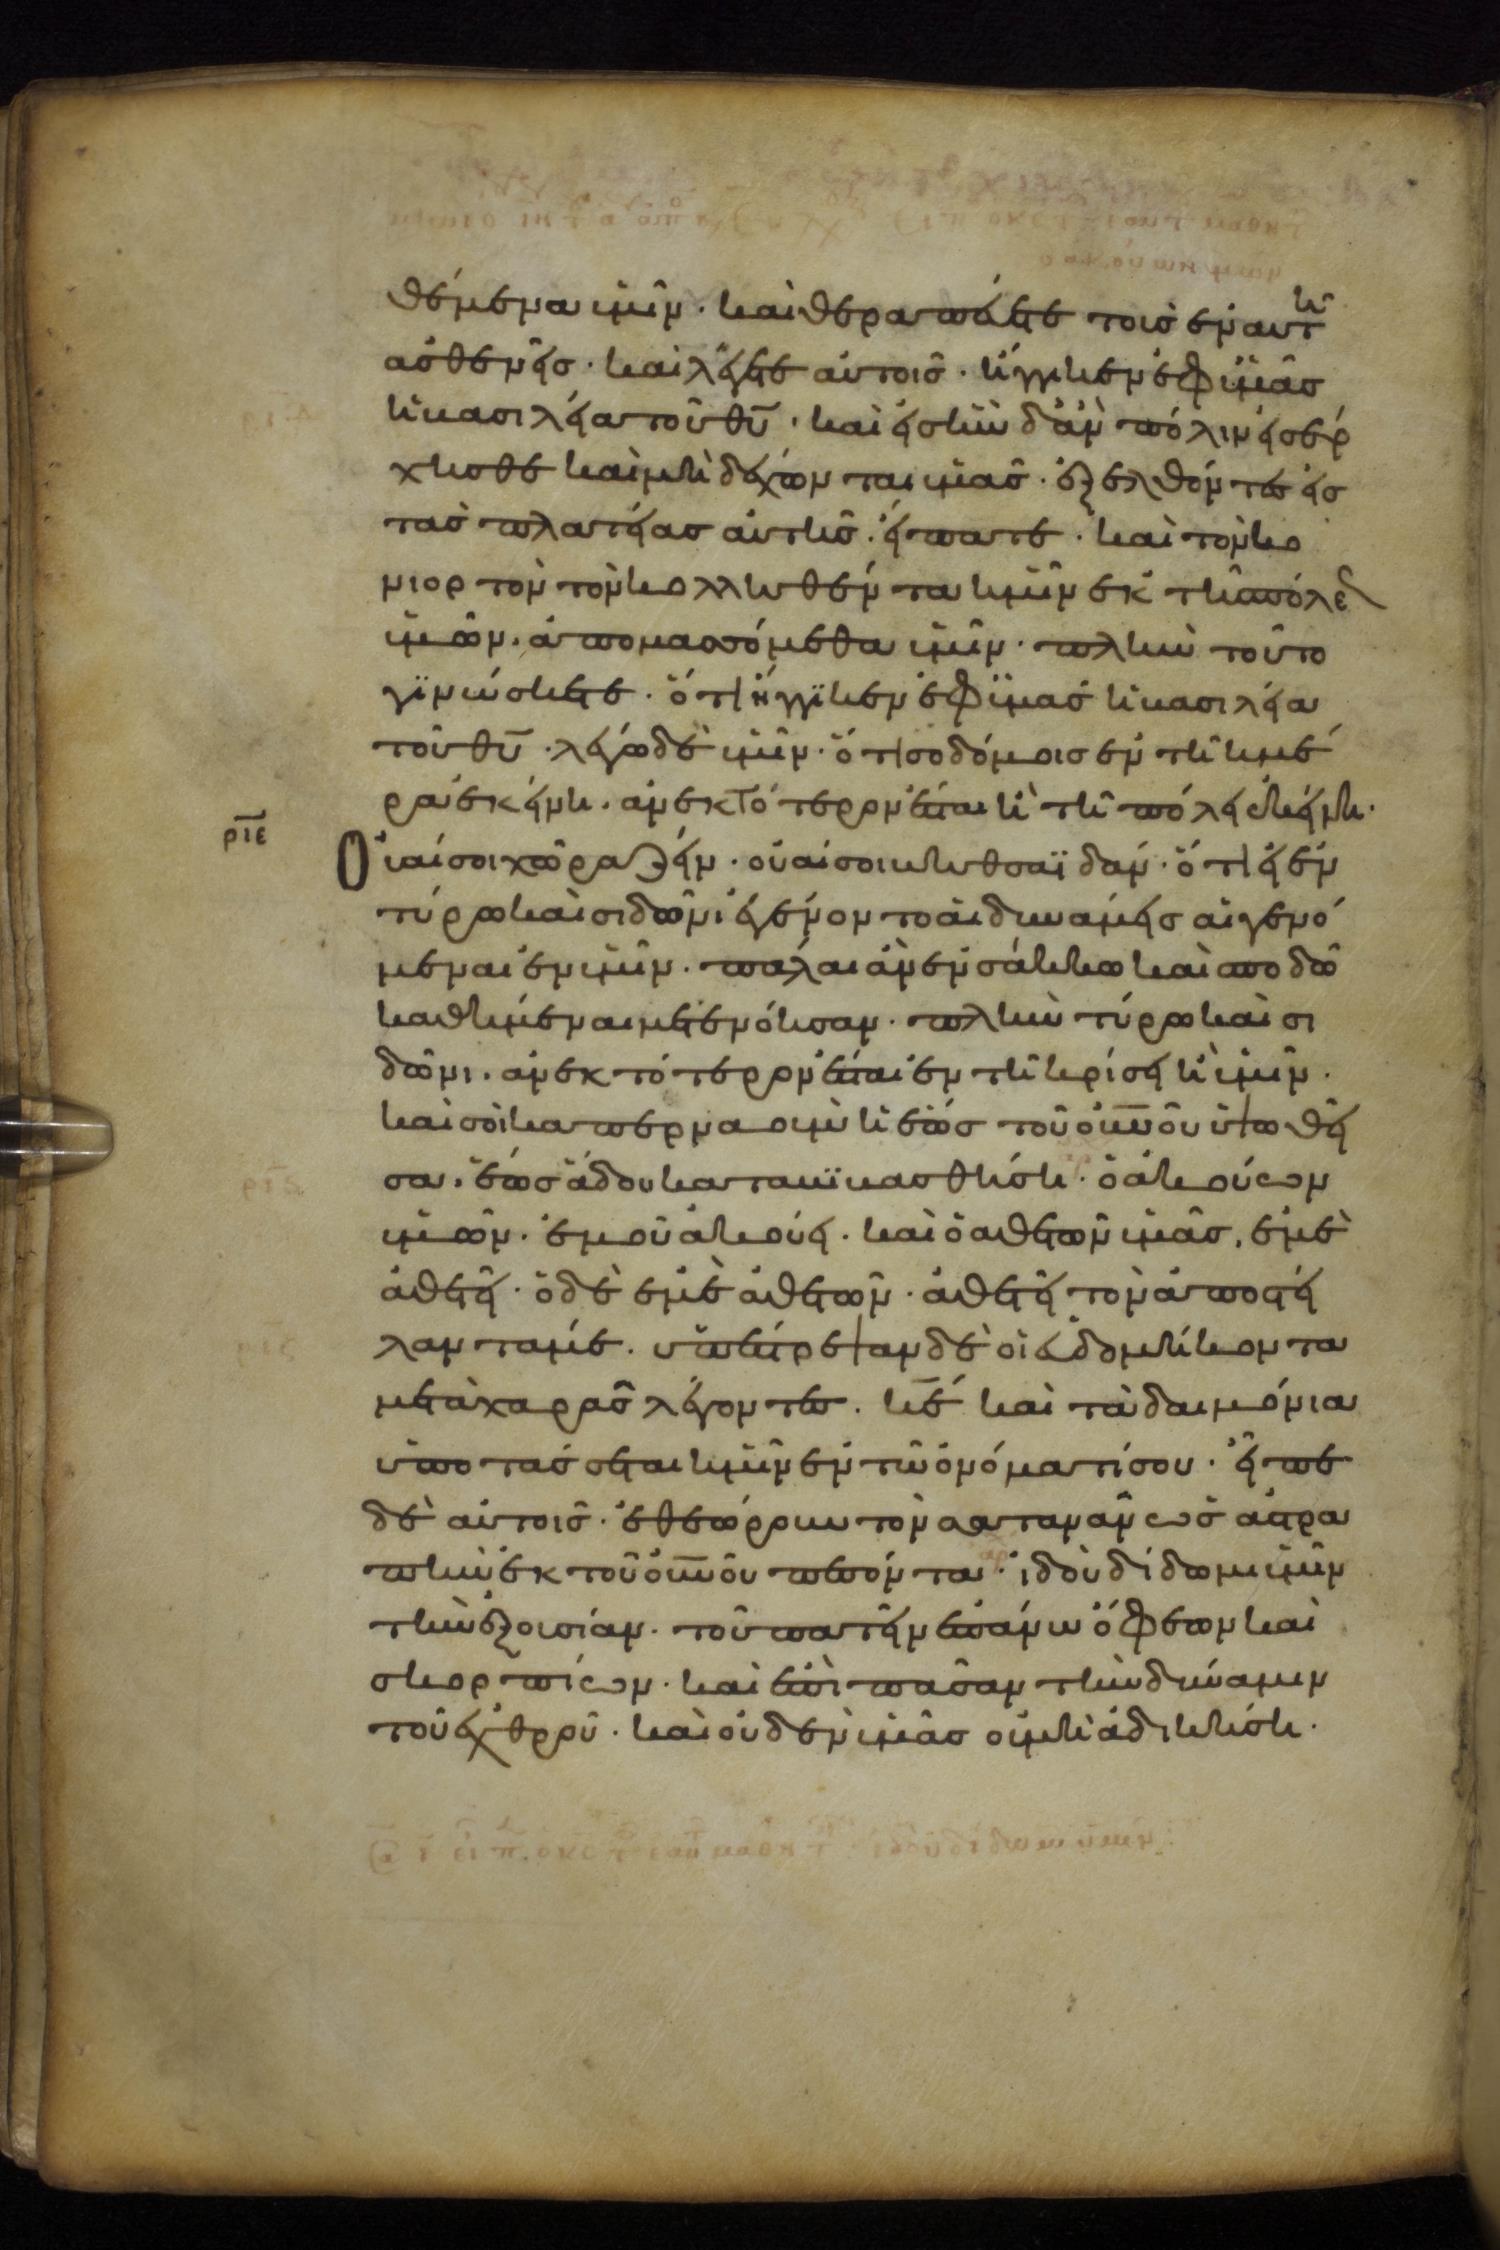 θέμενα ὑμῖν· καὶ θεραπεύετε τοὺς ἐν αὐτῆ
ἀσθενεῖς· καὶ λέγετε αὐτοῖς· ἤγγικεν ἐφ ὑμᾶς
ἡ βασιλεία τοῦ θῡ· καὶ εἰς ἣν δἂν πόλιν εἰσέρ
χησθε καὶ μὴ δέχωνται ὑμᾶς· ἐξελθόντες εἰς
τὰς πλατείας αὐτῆς· εἴπατε· καὶ τὸν κο
νιορτὸν τὸν κολληθέντα ἡμῖν ἐκ τῆς πόλεως
ὑμῶν· ἀπομασσόμεθα ὑμῖν· πλὴν τοῦτο
γϊνώσκετε· ὅτι ἤγγϊκεν ἐφ ὑμᾶς ἡ βασιλεία
τοῦ θῡ· λέγω δὲ ὑμῖν· ὅτι σοδόμοις ἐν τῆ ἡμέ
ρα ἐκείνη· ἀνεκτότερον ἔσται ἢ τῆ πόλει ἐκείνη·
ρῑε
Οὐαί σοι χωραζείν· οὐαί σοι βηθσαϊδάν· ὅτι εἰ ἐν
τύρω καὶ σιδῶνι ἐγένοντο αἱ δυνάμεις αἱ γενό
μεναι ἐν ὑμῖν· πάλαι ἂν ἐν σάκκω καὶ σποδῶ
καθήμεναι μετενόησαν· πλὴν τύρω καὶ σι
δῶνι· ἀνεκτότερον ἔσται ἐν τῆ κρίσει ἢ ὑμῖν·
καὶ σὺ καπερναοὺμ ἡ ἕως τοῦ οὐν̅οῦ ὑψωθεῖ
σα· ἕως ἅδου καταβϊβασθήση· ὁ ἀκούων
ὑμῶν· ἐμοῦ ἀκούει· καὶ ὁ ἀθετῶν ὑμᾶς, ἐμὲ
ἀθετεῖ· ὁ δὲ ἐμὲ ἀθετῶν· ἀθετεῖ τὸν ἀποστεί
λαντά με· ὑπέστρεψαν δὲ οἱ ἑβδομήκοντα
μετὰ χαρᾶς λέγοντες· κ̅ε καὶ τὰ δαιμόνια
ὑποτάσσεται ἡμῖν ἐν τῶ ὀνόματί σου· εἶπε
δὲ αὐτοῖς· ἐθεώρουν τὸν σατανᾶν ὡς ἀστρα
πὴν ἐκ τοῦ οὐν̅οῦ πεσόντα· ἰδοὺ δίδωμι ὑμῖν
τὴν ἐξουσίαν· τοῦ πατεῖν ἐπάνω ὄφεων καὶ
σκορπίων· καὶ ἐπὶ πᾶσαν τὴν δύναμιν
τοῦ ἐχθροῦ· καὶ οὐδὲν ὑμᾶς οὐ μὴ ἀδικήση·